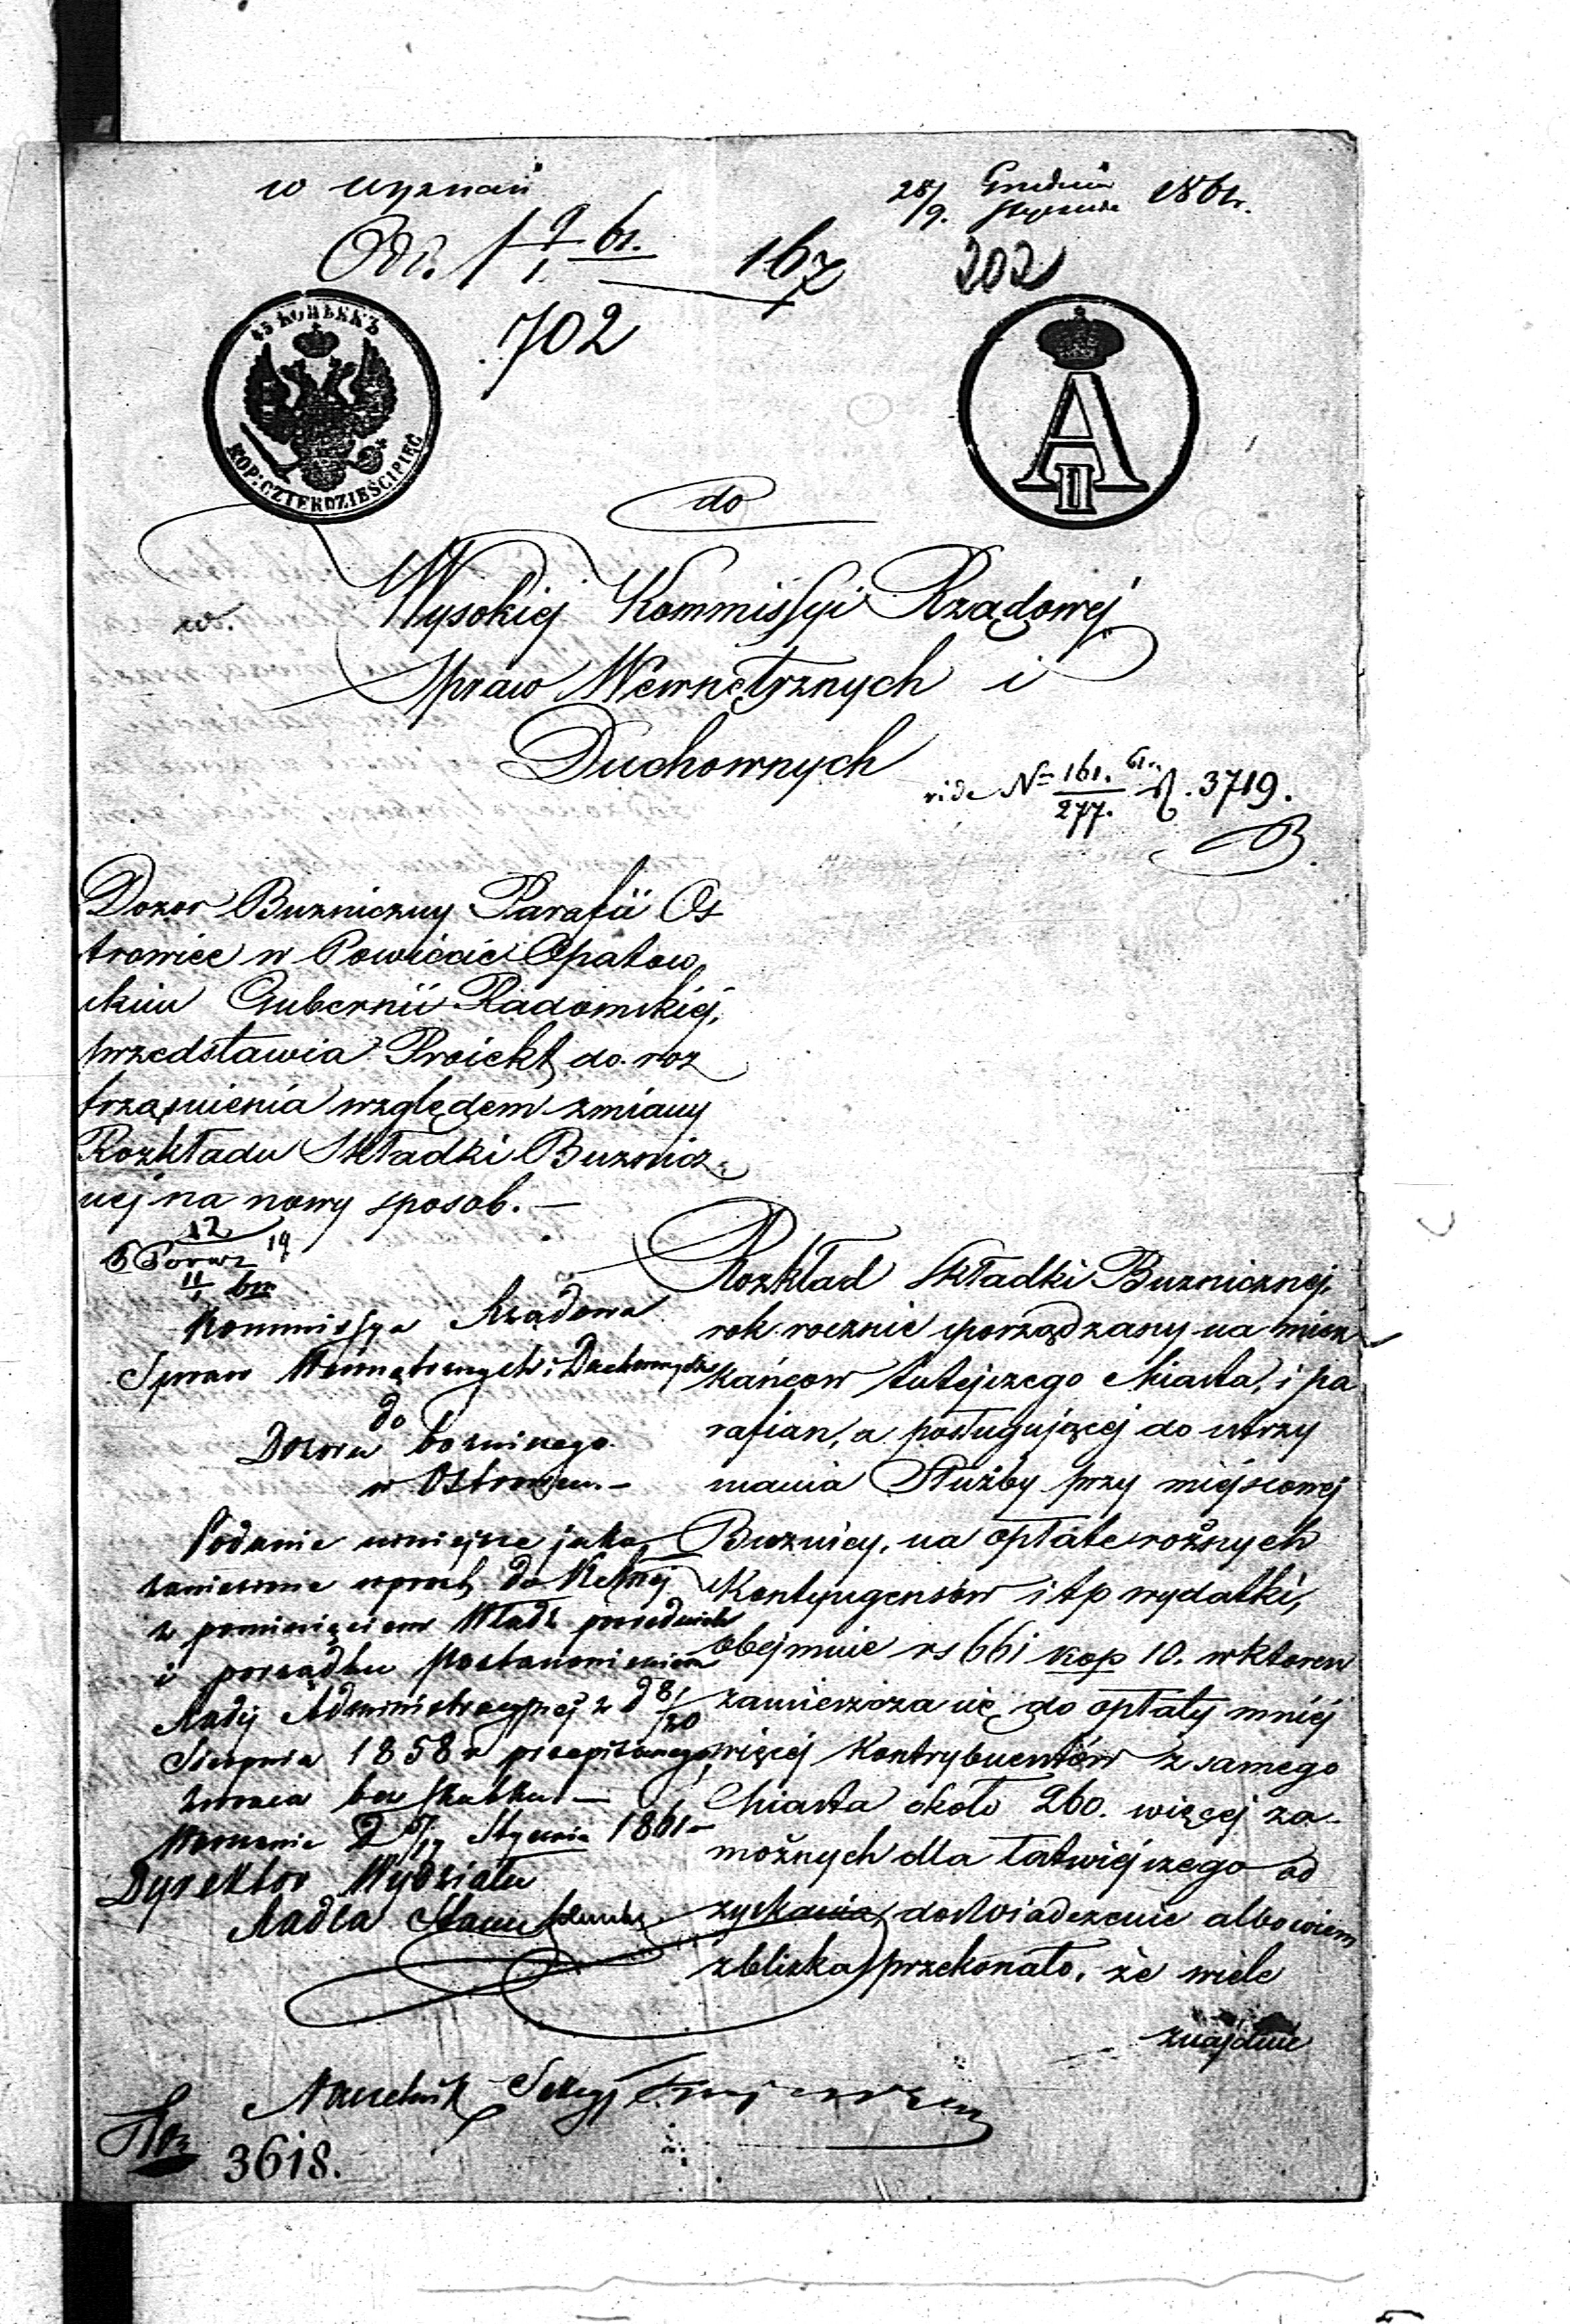 w wyznań
28/9. Grudnia Stycznia 1861.
Od. 1 9/1 61.
167
202
702
45 КОПѢЕКЪ
KOP: CZTERDZIEŚCI PIĘĆ
A II
do
Wysokiej Kommissyi Rządowej
w.
Spraw Wewnętrznych i
Duchownych
vide No 161./277. 61. .3719.
Dozor Buzniczny Parafii Os
trowiec w Powiecie Opatow
skim Gubernii Radomskiej,
przedstawia Proiekt do roz
trząsnienia względem zmiany
Rozkładu Składki Buznicz
nej na nowy sposob. —
12
19
11/1 61
Kommissya Rządowa
Spraw Wewnętrznych i Duchownych
do
Dozoru bożniczego
w Ostrowcu. —
Podanie niniejsze jako
zaniesione wprost do
z pominięciem Władz pośrednich
i porządku Postanowieniem
Rady Administracyjnej z d 8/20
Sierpnia 1858 r przepisanego,
zwraca bez skutku —
Warszawie D 5/17 Stycznia 1861 —
Dyrektor Wydziału
Radca Stanu
Naczelnik Sekcyi
3618.
Rozkład Składki Buznicznej,
rok rocznie sporządzany na miesz
kańcow tutejszego Miasta, i pa
rafian, a posługującej do utrzy
mania Służby przy miejscowej
Buznicy, na opłate rożnych
Kontyngensów i tp wydatki,
obejmuie rs 661 kop 10. w ktorem
zamieszcza się do opłaty mniéj
więcéj Kontrybuentów z samego
Miasta około 260. więcej za-
możnych dla łatwiejszego od
zyskania, doświadczenie albowiem
zblizka przekonało, że wiele
znajduie